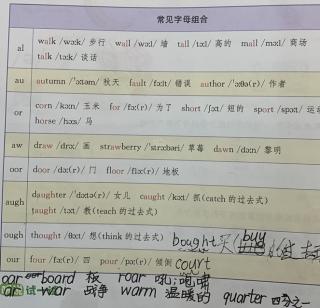 常见字母组合
al walk /wɔːk/ 步行 wall /wɔːl/ 墙 tall /tɔːl/ 高的 mall /mɔːl/ 商场
talk /tɔːk/ 谈话
au autumn /ˈɔːtəm/ 秋天 fault /fɔːlt/ 错误 author /ˈɔːθə(r)/ 作者
or corn /kɔːn/ 玉米 for /fɔː(r)/ 为了 short /ʃɔːt/ 短的 sport /spɔːt/ 运动
horse /hɔːs/ 马
aw draw /drɔː/ 画 strawberry /ˈstrɔːbəri/ 草莓 dawn /dɔːn/ 黎明
oor door /dɔː(r)/ 门 floor /flɔː(r)/ 地板
augh daughter /ˈdɔːtə(r)/ 女儿 caught /kɔːt/ 抓(catch 的过去式)
taught /tɔːt/ 教(teach 的过去式)
ough thought /θɔːt/ 想(think 的过去式) bought 买 (buy
our four /fɔː(r)/ 四 pour /pɔː(r)/ 倾倒 court
oar board 板 roar 吼;咆哮
ar war 战争 warm 温暖的 quarter 四分之一